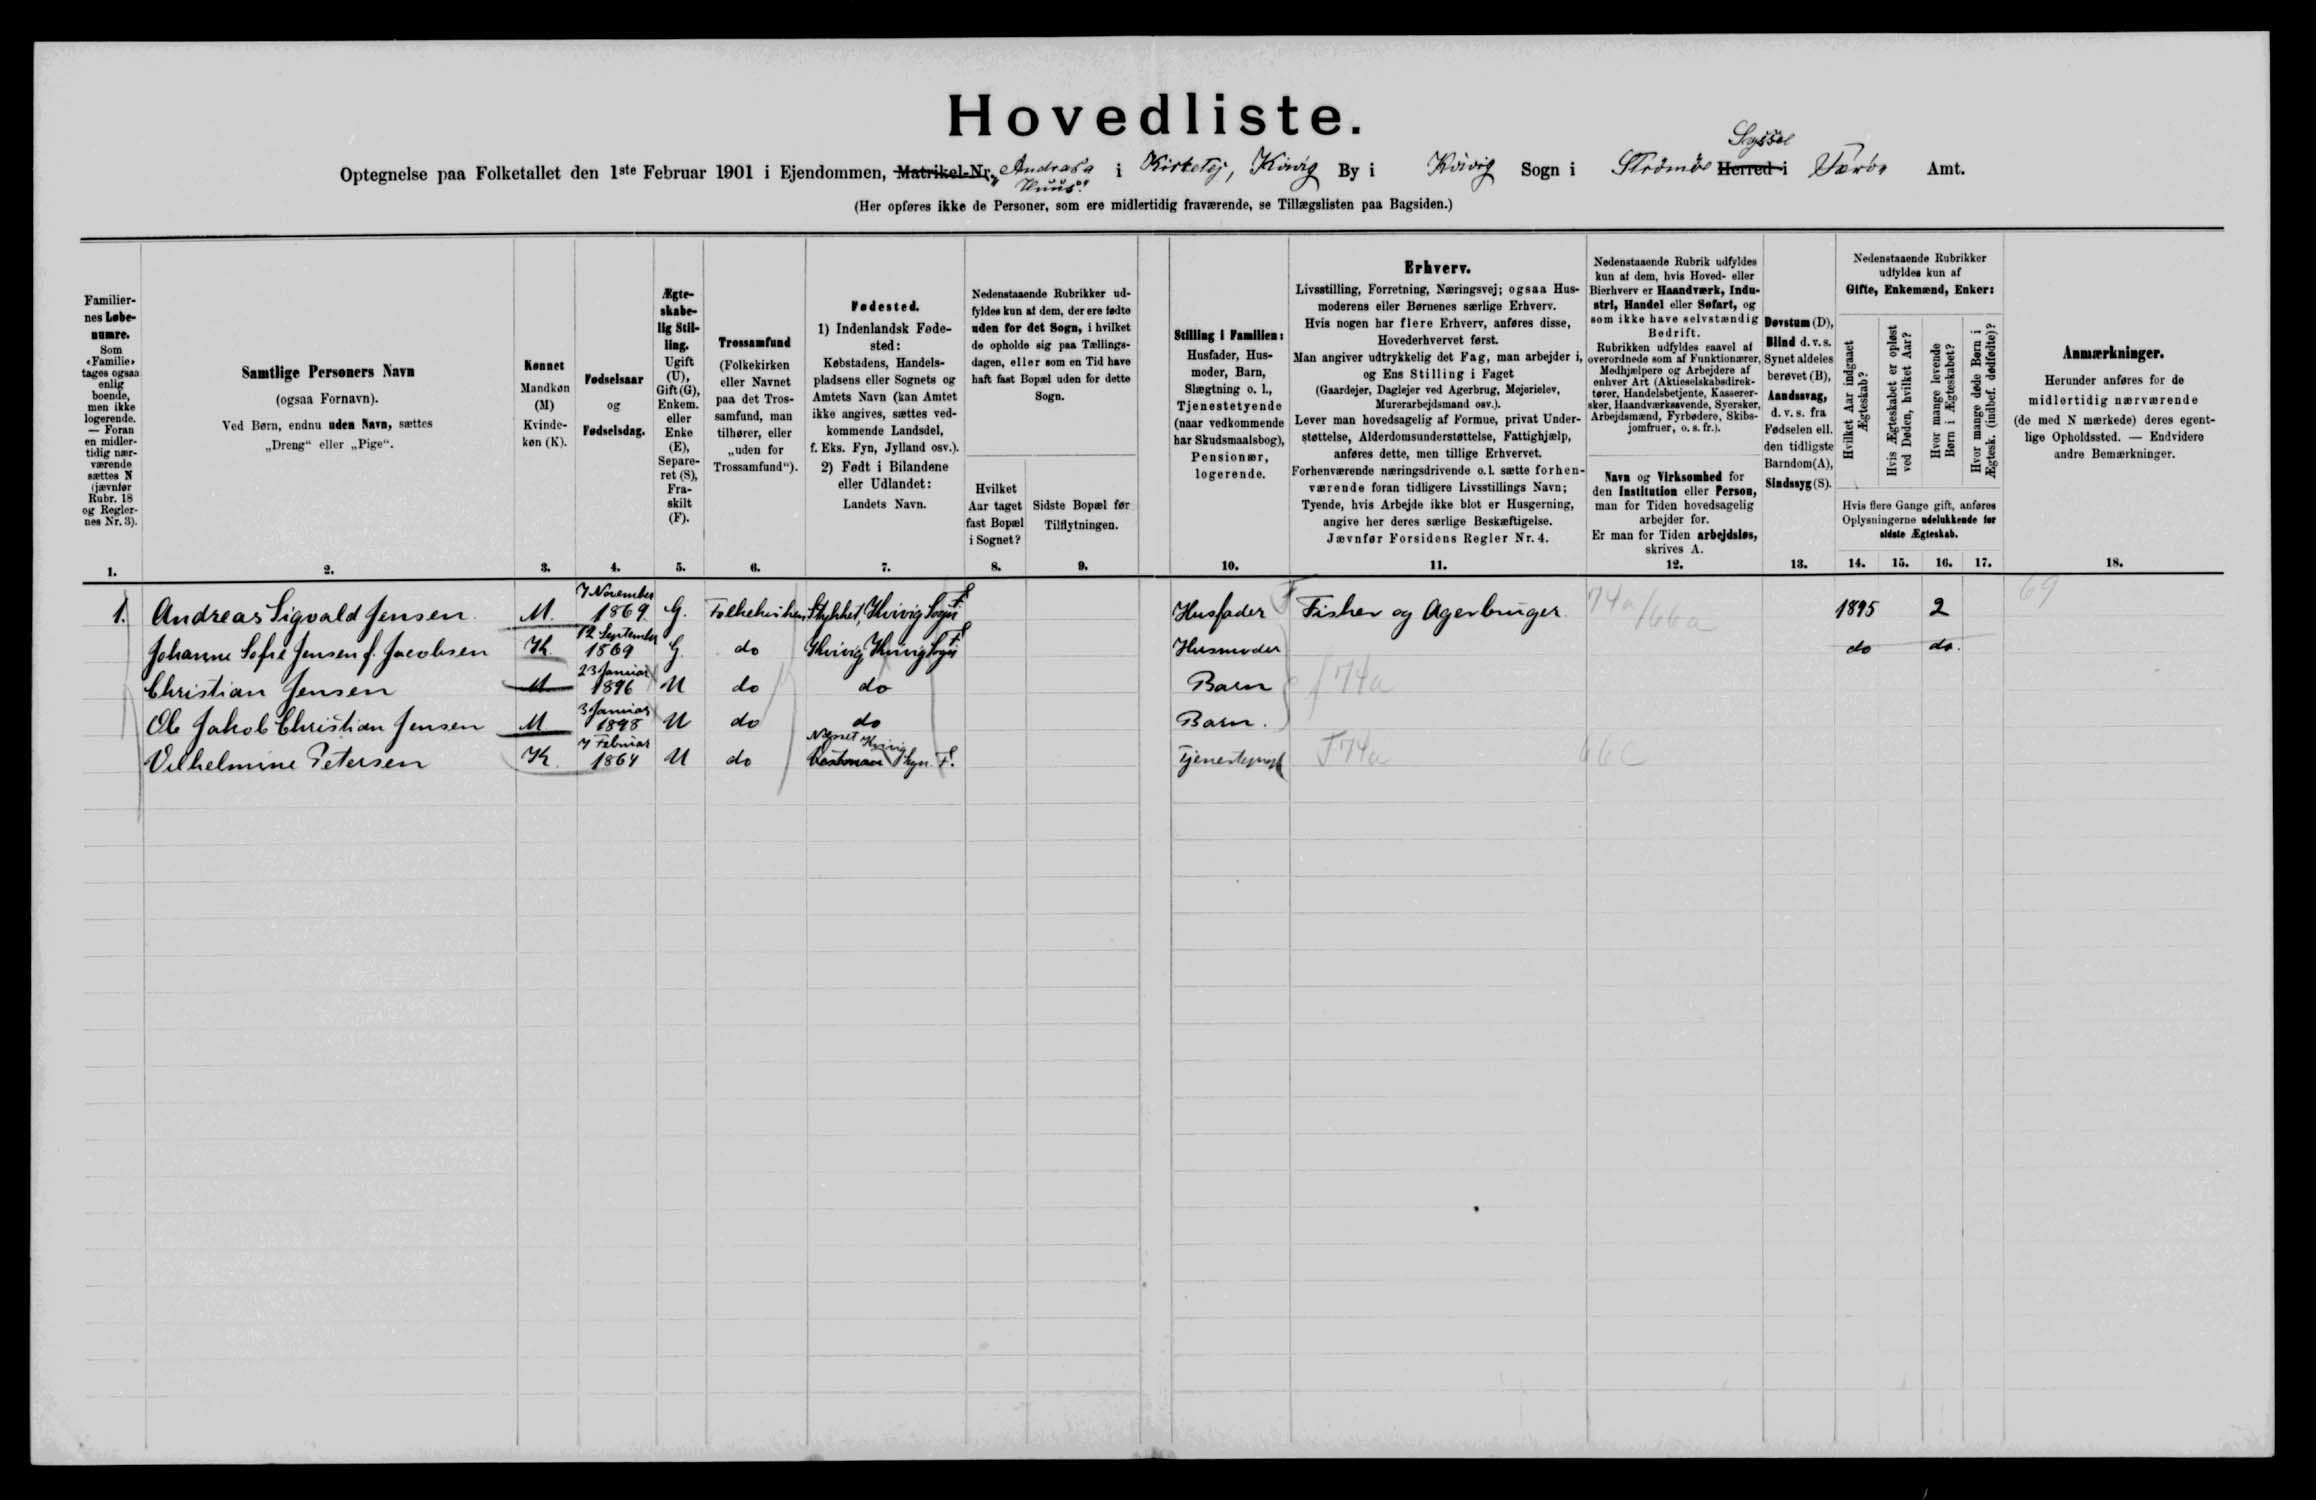 Hovedliste.
Syssel
Optegnelse paa Folketallet den 1ste Februar 1901 i Ejendommen, Matrikel-Nr. Andrasa i Kirketej, Kvivig By i Kvivig Sogn i Strömöe Herred i Færöe Amt.
(Her opføres ikke de Personer, som ere midlertidig fraværende, se Tillægslisten paa Bagsiden.)
Familier-
nes Løbe-
numre.
Som
«Familie»
tages ogsaa
enlig
boende,
men ikke
logerende.
— Foran
en midler-
tidig nær-
værende
sættes N
(jævnfør
Rubr. 18
og Regler-
nes Nr. 3).
1.
Samtlige Personers Navn
(ogsaa Fornavn).
Ved Børn, endnu uden Navn, sættes
„Dreng“ eller „Pige“.
2.
Kønnet
Mandkøn
(M)
Kvinde-
køn (K).
3.
Fødselsaar
og
Fødselsdag.
4.
Ægte-
skabe-
lig Stil-
ling.
Ugift
(U),
Gift (G),
Enkem.
eller
Enke
(E),
Separe-
ret (S),
Fra-
skilt
(F).
5.
Trossamfund
(Folkekirken
eller Navnet
paa det Tros-
samfund, man
tilhører, eller
„uden for
Trossamfund“).
6.
Fødested.
1) Indenlandsk Føde-
sted:
Købstadens, Handels-
pladsens eller Sognets og
Amtets Navn (kan Amtet
ikke angives, sættes ved-
kommende Landsdel,
f. Eks. Fyn, Jylland osv.).
2) Født i Bilandene
eller Udlandet:
Landets Navn.
7.
Nedenstaaende Rubrikker ud-
fyldes kun af dem, der ere fødte
uden for det Sogn, i hvilket
de opholde sig paa Tællings-
dagen, eller som en Tid have
haft fast Bopæl uden for dette
Sogn.
Hvilket
Aar taget
fast Bopæl
i Sognet?
8.
Sidste Bopæl før
Tilflytningen.
9.
Stilling i Familien:
Husfader, Hus-
moder, Barn,
Slægtning o. l.,
Tjenestetyende
(naar vedkommende
har Skudsmaalsbog),
Pensionær,
logerende.
10.
Erhverv.
Livsstilling, Forretning, Næringsvej; ogsaa Hus-
moderens eller Børnenes særlige Erhverv.
Hvis nogen har flere Erhverv, anføres disse,
Hovederhvervet først.
Man angiver udtrykkelig det Fag, man arbejder i,
og Ens Stilling i Faget
(Gaardejer, Daglejer ved Agerbrug, Mejerielev,
Murerarbejdsmand osv.).
Lever man hovedsagelig af Formue, privat Under-
støttelse, Alderdomsunderstøttelse, Fattighjælp,
anføres dette, men tillige Erhvervet.
Forhenværende næringsdrivende o. l. sætte forhen-
værende foran tidligere Livsstillings Navn;
Tyende, hvis Arbejde ikke blot er Husgerning,
angive her deres særlige Beskæftigelse.
Jævnfør Forsidens Regler Nr. 4.
11.
Nedenstaaende Rubrik udfyldes
kun af dem, hvis Hoved- eller
Bierhverv er Haandværk, Indu-
stri, Handel eller Søfart, og
som ikke have selvstændig
Bedrift.
Rubrikken udfyldes saavel af
overordnede som af Funktionærer,
Medhjælpere og Arbejdere af
enhver Art (Aktieselskabsdirek-
tører, Handelsbetjente, Kasserer-
sker, Haandværkssvende, Syersker,
Arbejdsmænd, Fyrbødere, Skibs-
jomfruer, o. s. fr.).
Navn og Virksomhed for
den Institution eller Person,
man for Tiden hovedsagelig
arbejder for.
Er man for Tiden arbejdsløs,
skrives A.
12.
Døvstum (D),
Blind d. v. s.
Synet aldeles
berøvet (B),
Aandssvag,
d. v. s. fra
Fødselen ell.
den tidligste
Barndom (A),
Sindssyg (S).
13.
Nedenstaaende Rubrikker
udfyldes kun af
Gifte, Enkemænd, Enker:
Hvilket Aar indgaaet
Ægteskab?
Hvis Ægteskabet er opløst
ved Døden, hvilket Aar?
Hvor mange levende
Børn i Ægteskabet?
Hvor mange døde Børn i
Ægtesk. (indbef. dødfødte)?
Hvis flere Gange gift, anføres
Oplysningerne udelukkende for
sidste Ægteskab.
14. 15. 16. 17.
Anmærkninger.
Herunder anføres for de
midlertidig nærværende
(de med N mærkede) deres egent-
lige Opholdssted. — Endvidere
andre Bemærkninger.
18.
1. Andreas Sigvald Jensen M. 7 November 1869. G. Folkekirken Stykket, Kvivig Sogn F Husfader F Fisker og Agerbruger 74a/66a 1895 2 69
Johanne Sofie Jensen f. Jacobsen K. 12 September 1869 G. do Kvivig Kvivig Sogn F Husmoder do do.
Christian Jensen M 23 Januar 1896 U do do Barn f 74a
Ole Jakob Christian Jensen M 3 Januar 1898 U do do Barn.
Vilhelmine Petersen K. 7 Februar 1864 U do Kvivig Sogn F. F 74a 66c